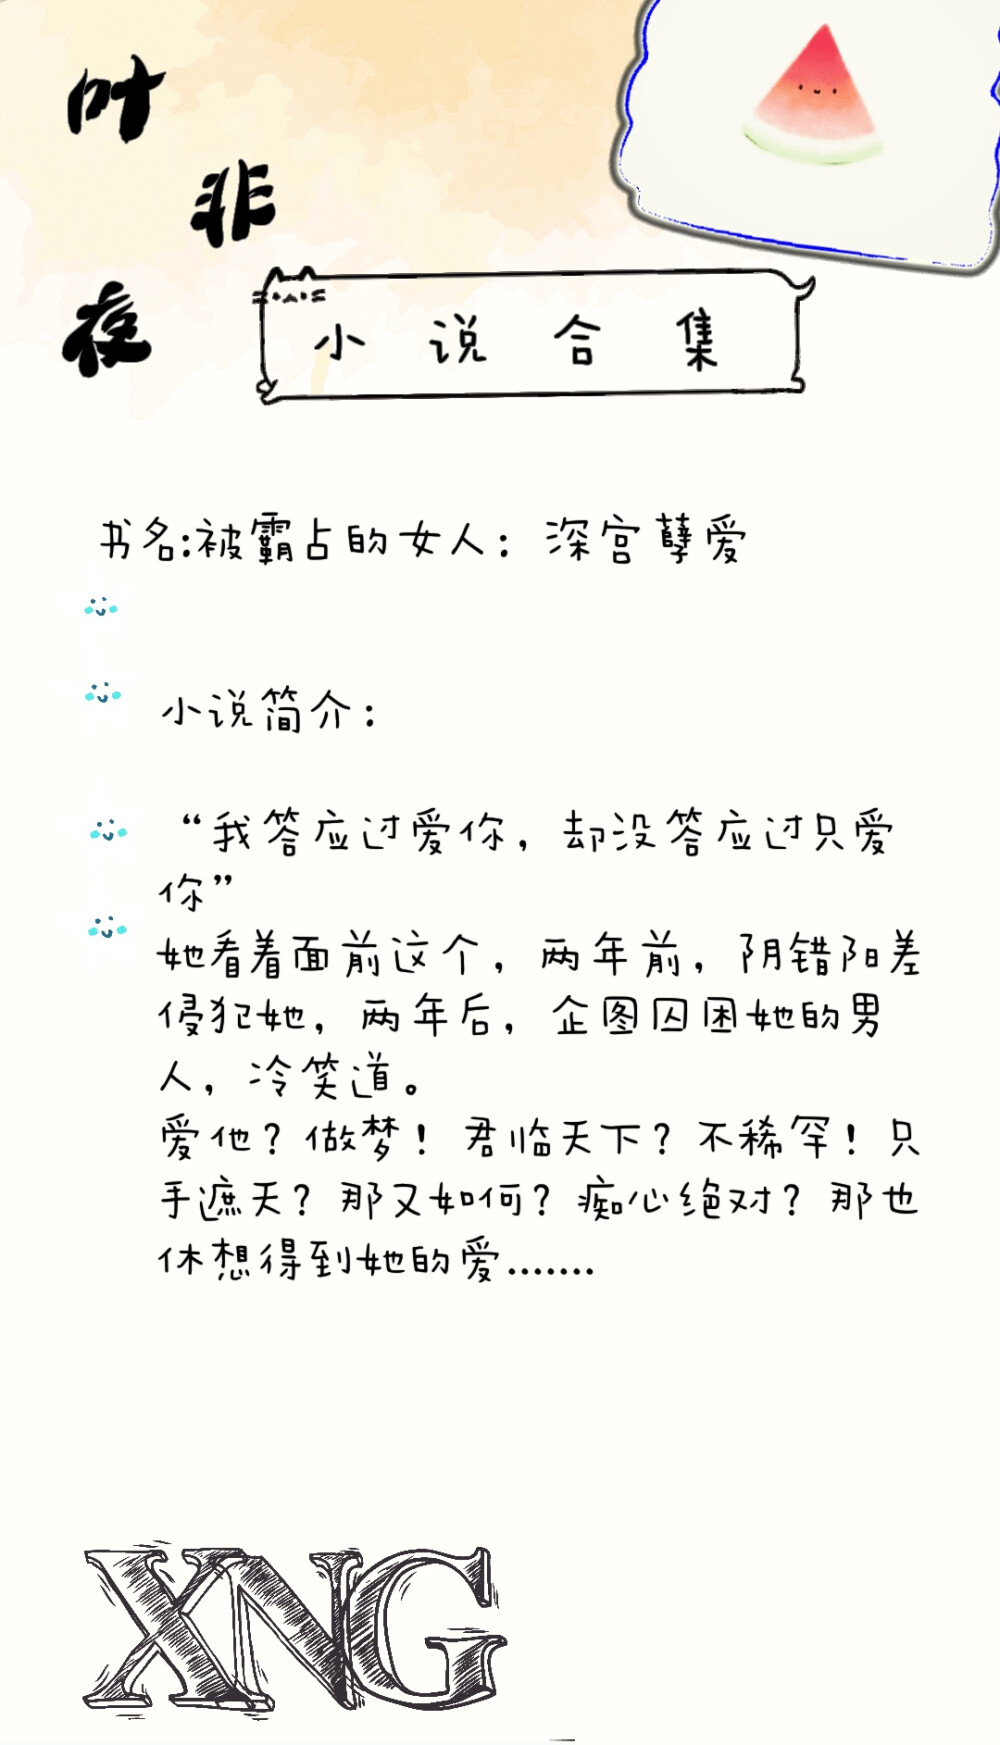 叶
非
夜
小说合集
书名:被霸占的女人：深宫孽爱
小说简介：
“我答应过爱你，却没答应过只爱
你”
她看着面前这个，两年前，阴错阳差
侵犯她，两年后，企图囚困她的男
人，冷笑道。
爱他？做梦！君临天下？不稀罕！只
手遮天？那又如何？痴心绝对？那也
休想得到她的爱.......
XNG